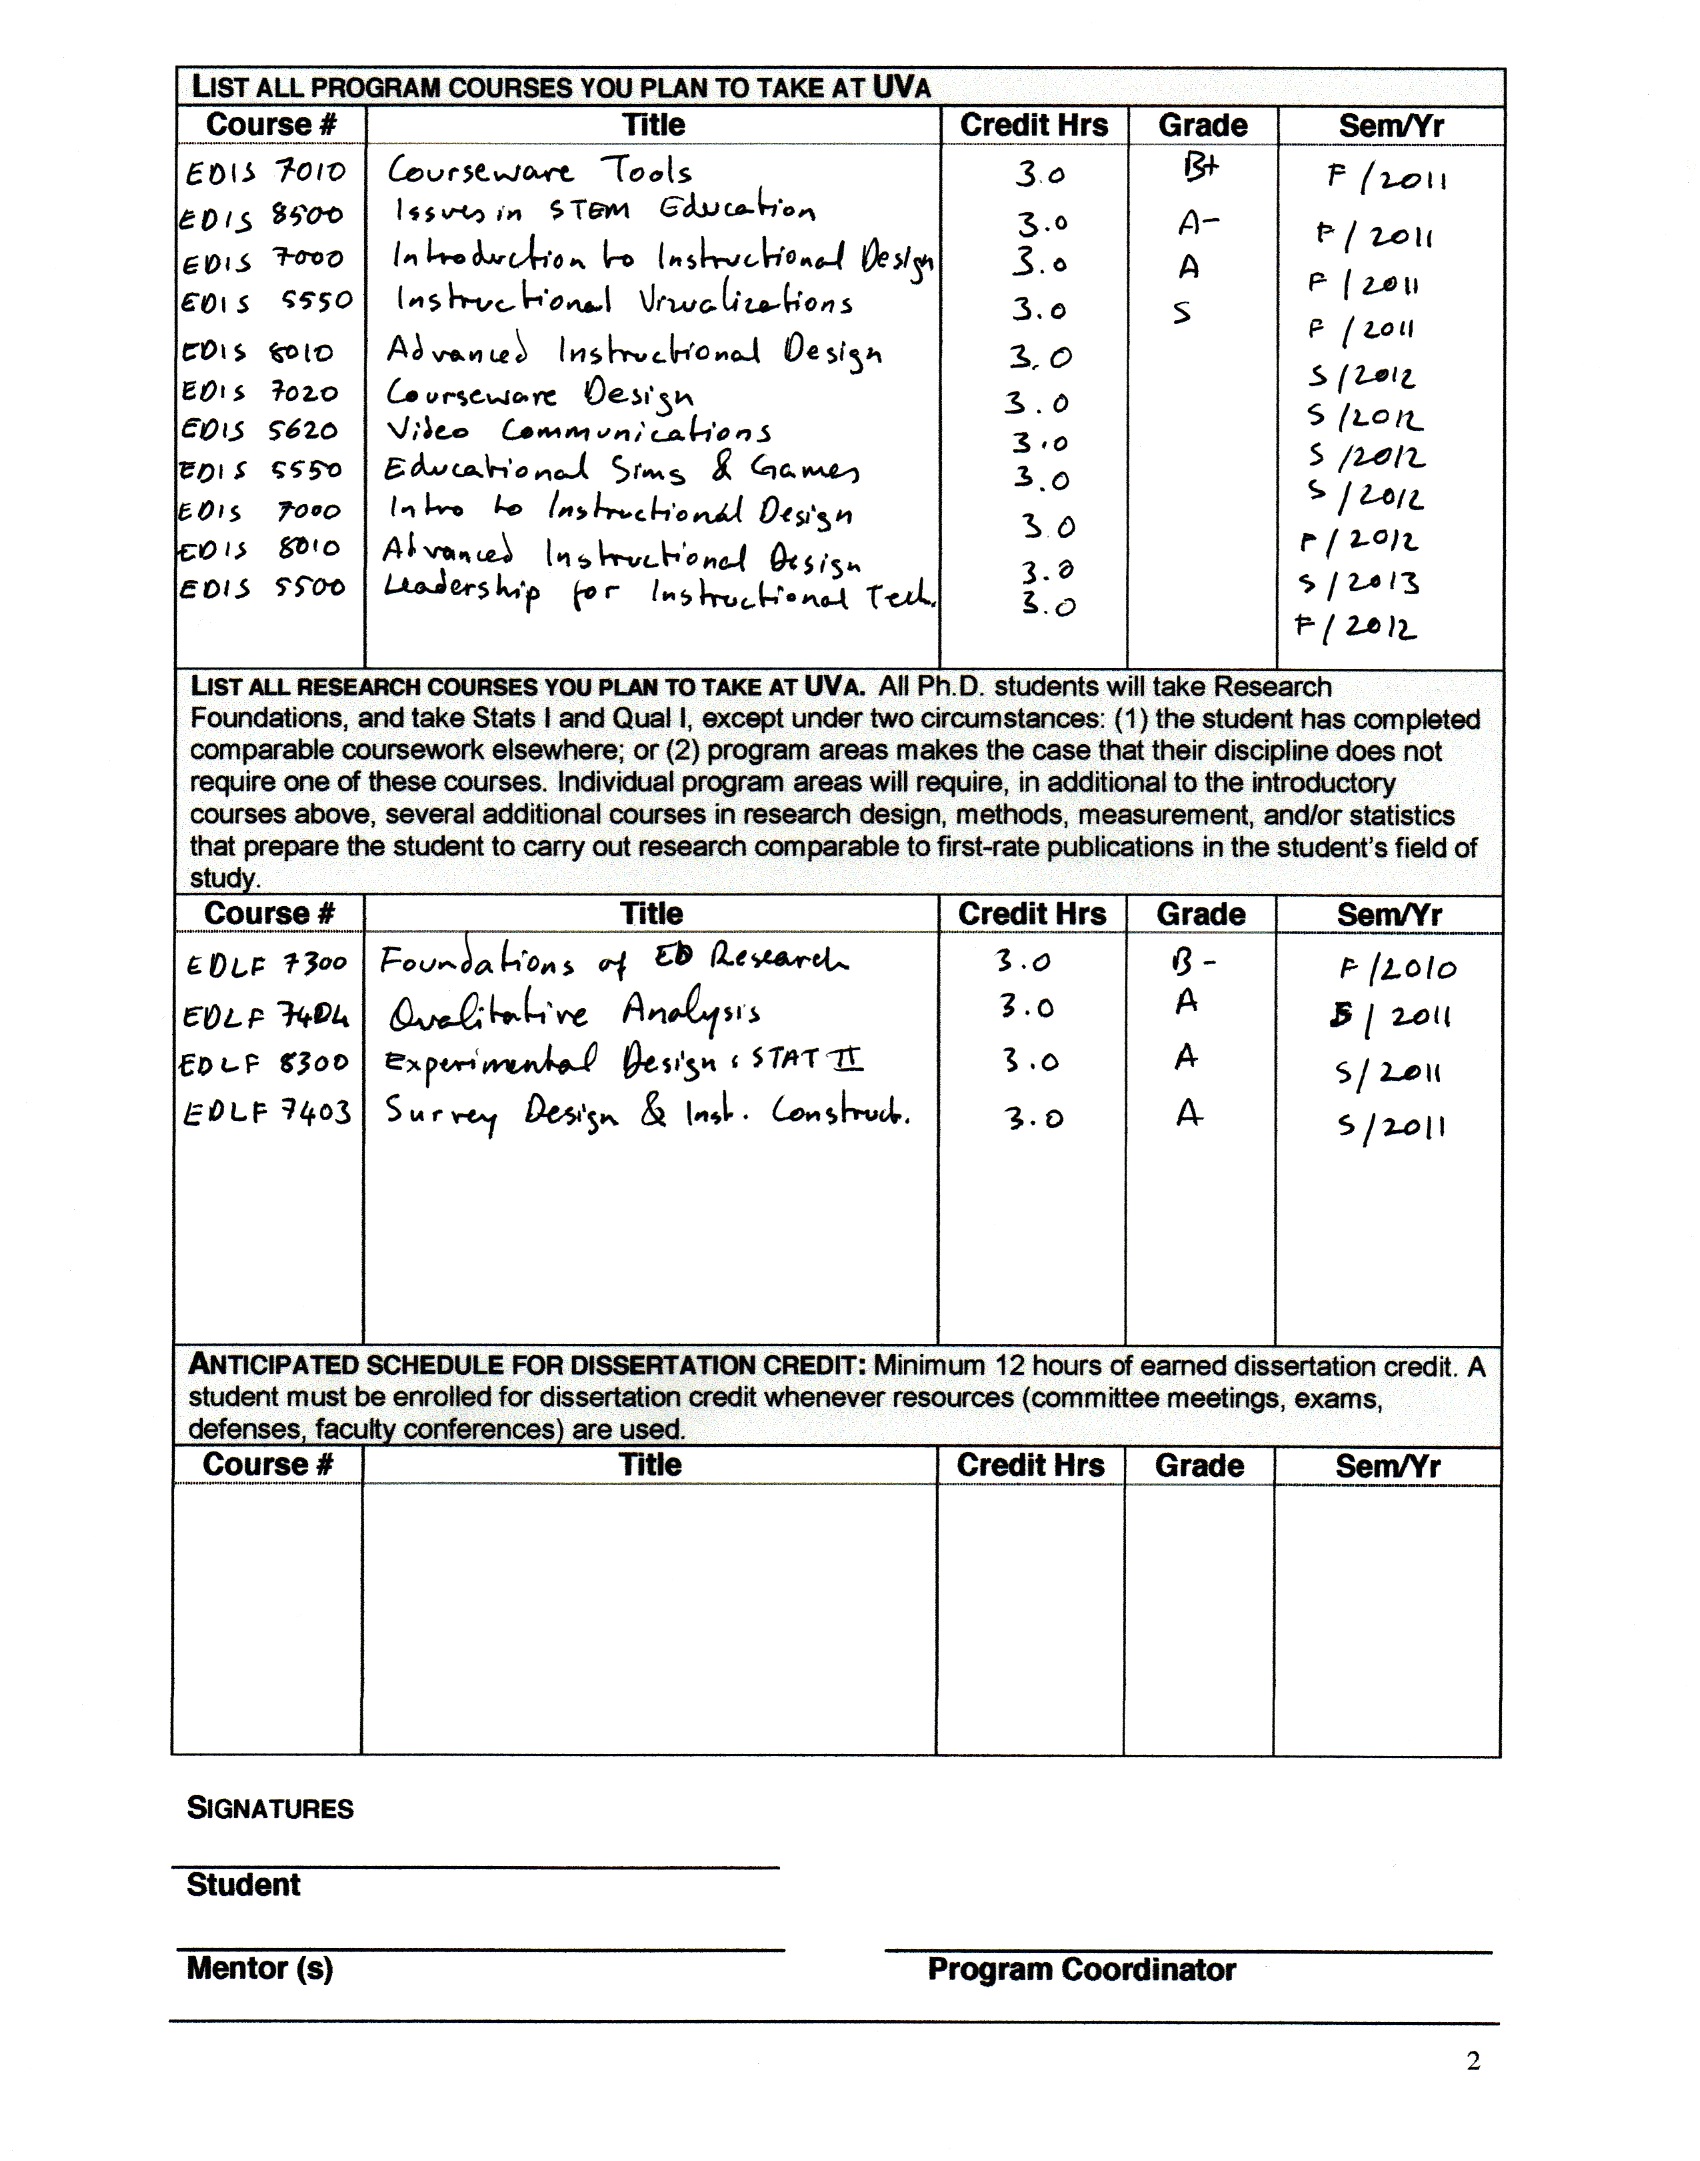 LIST ALL PROGRAM COURSES YOU PLAN TO TAKE AT UVA
Course # Title Credit Hrs Grade Sem/Yr
EDIS 7010 Courseware Tools 3.0 B+ F/2011
EDIS 8500 Issues in STEM Education 3.0 A- F/2011
EDIS 7000 Introduction to Instructional Design 3.0 A F/2011
EDIS 5550 Instructional Vizualizations 3.0 S F/2011
EDIS 8010 Advanced Instructional Design 3.0 S/2012
EDIS 7020 Courseware Design 3.0 S/2012
EDIS 5620 Video Communications 3.0 S/2012
EDIS 5550 Educational Sims & Games 3.0 S/2012
EDIS 7000 Intro to Instructional Design 3.0 F/2012
EDIS 8010 Advanced Instructional Design 3.0 S/2013
EDIS 5500 Leadership for Instructional Tech. 3.0 F/2012
LIST ALL RESEARCH COURSES YOU PLAN TO TAKE AT UVA. All Ph.D. students will take Research
Foundations, and take Stats I and Qual I, except under two circumstances: (1) the student has completed
comparable coursework elsewhere; or (2) program areas makes the case that their discipline does not
require one of these courses. Individual program areas will require, in additional to the introductory
courses above, several additional courses in research design, methods, measurement, and/or statistics
that prepare the student to carry out research comparable to first-rate publications in the student's field of
study.
Course # Title Credit Hrs Grade Sem/Yr
EDLF 7300 Foundations of ED Research 3.0 B- F/2010
EDLF 7404 Qualitative Analysis 3.0 A S/2011
EDLF 8300 Experimental Design: STAT II 3.0 A S/2011
EDLF 7403 Survey Design & Inst. Construct. 3.0 A S/2011
ANTICIPATED SCHEDULE FOR DISSERTATION CREDIT: Minimum 12 hours of earned dissertation credit. A
student must be enrolled for dissertation credit whenever resources (committee meetings, exams,
defenses, faculty conferences) are used.
Course # Title Credit Hrs Grade Sem/Yr
SIGNATURES
Student
Mentor (s) Program Coordinator
2